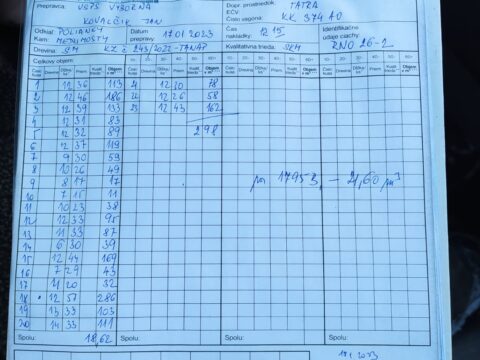 Prepravca: VSTS VÝBORNÁ Dopr. prostriedok: TATRA
KOVALČÍK JÁN EČV:
Číslo vagóna: KK 374 AO
Odkiaľ: POLIANKY Dátum prepravy: 17.01.2023 Čas nakládky: 12 15 Identifikačné údaje ciachy:
Kam: RNO 26-2
Drevina: SM KZ č 243/2022-TANAP Kvalitatívna trieda:
Celkový objem:
1 12 36 113 21 12 20 78
2 12 46 186 22 12 26 58
3 12 39 133 23 12 43 162
4 12 31 83
5 12 32 89 298
6 12 37 119
7 9 30 59
8 10 26 49
9 8 17 17 21,60 m³
10 7 15 11
11 10 23 38
12 12 33 95
13 11 33 87
14 6 30 39
15 12 44 169
16 7 29 43
17 11 20 32
18 12 57 286
19 13 33 103
20 14 33 111
Spolu: 18,62 Spolu: Spolu: Spolu: